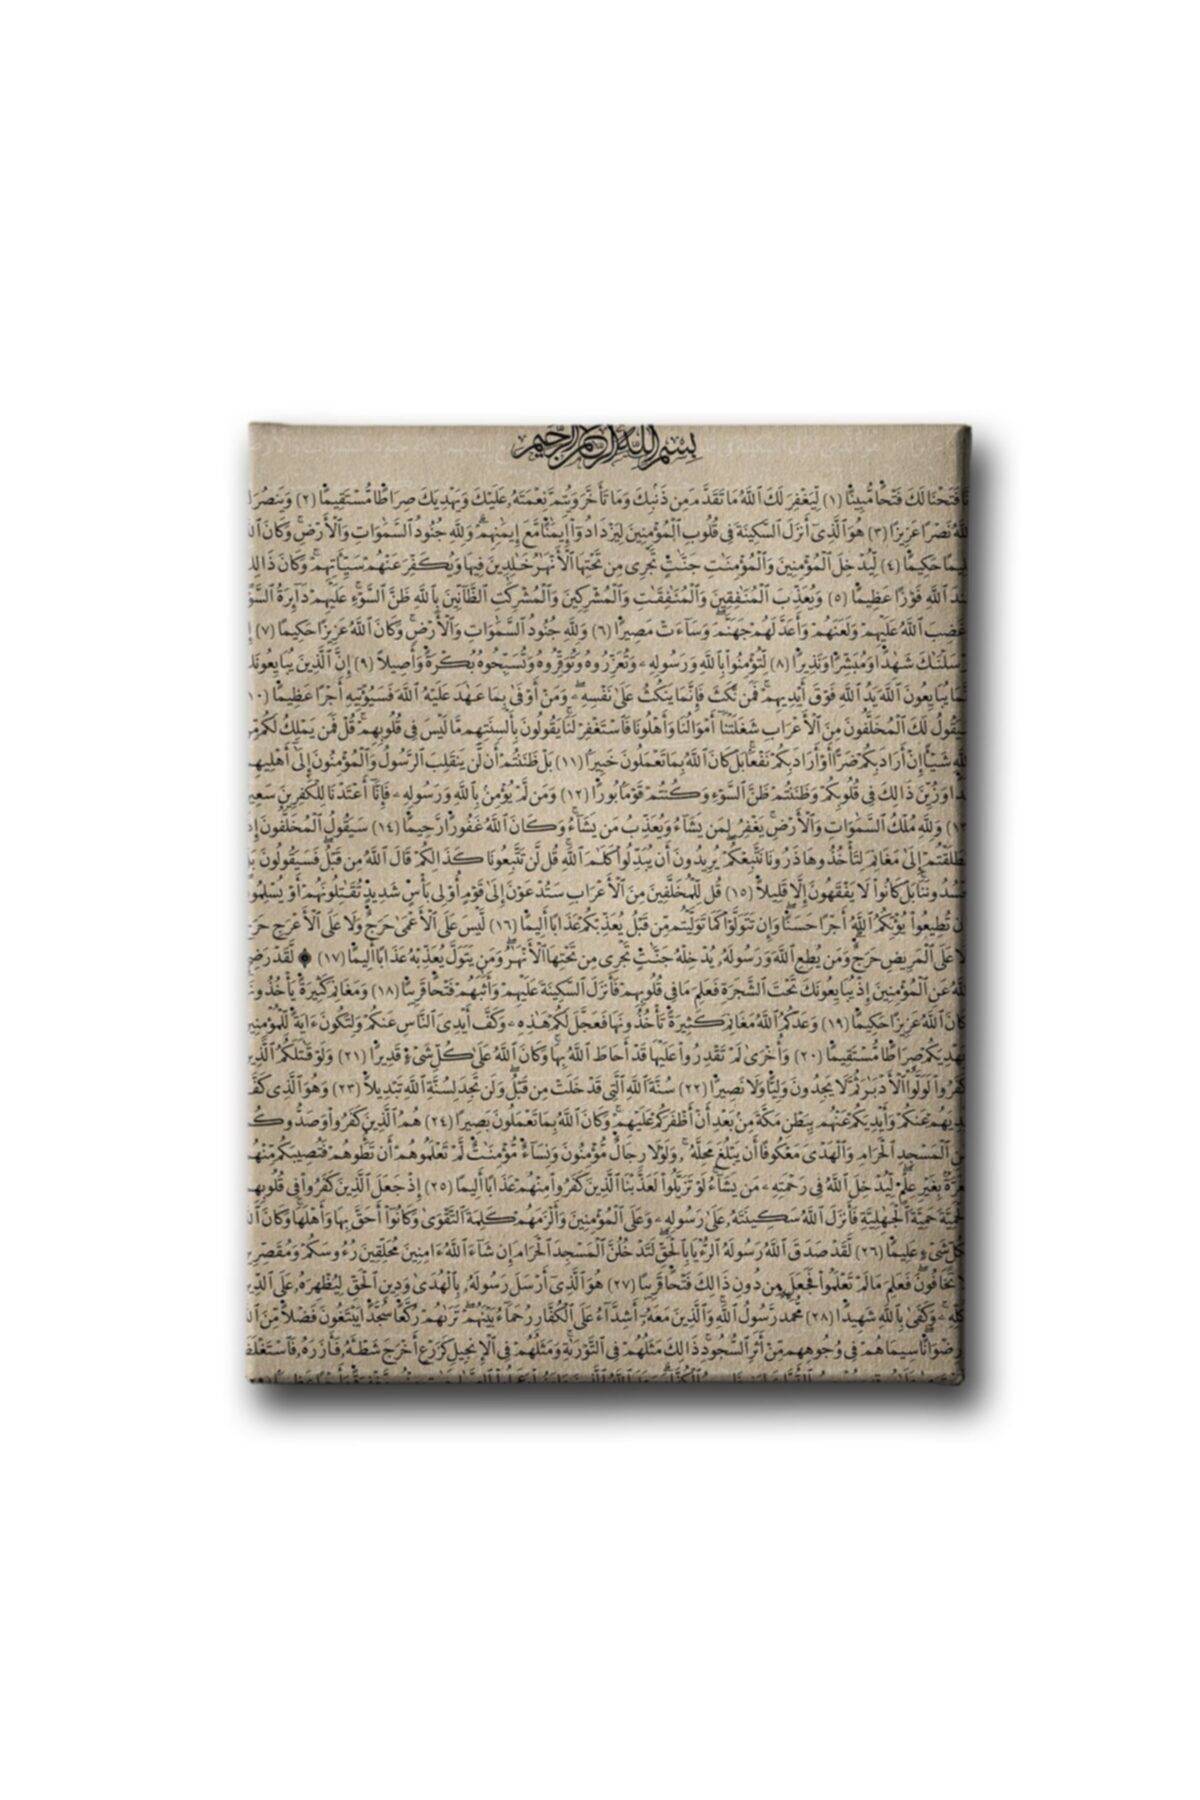 بِسْمِ اللَّهِ الرَّحْمَٰنِ الرَّحِيمِ
فَتَحْنَا لَكَ فَتْحًا مُّبِينًا (١) لِّيَغْفِرَ لَكَ ٱللَّهُ مَا تَقَدَّمَ مِن ذَنۢبِكَ وَمَا تَأَخَّرَ وَيُتِمَّ نِعْمَتَهُۥ عَلَيْكَ وَيَهْدِيَكَ صِرَاطًا مُّسْتَقِيمًا (٢) وَيَنصُرَ
نَصْرًا عَزِيزًا (٣) هُوَ ٱلَّذِىٓ أَنزَلَ ٱلسَّكِينَةَ فِى قُلُوبِ ٱلْمُؤْمِنِينَ لِيَزْدَادُوٓا۟ إِيمَٰنًا مَّعَ إِيمَٰنِهِمْ ۗ وَلِلَّهِ جُنُودُ ٱلسَّمَٰوَاتِ وَٱلْأَرْضِ ۚ وَكَانَ
حَكِيمًا (٤) لِّيُدْخِلَ ٱلْمُؤْمِنِينَ وَٱلْمُؤْمِنَٰتِ جَنَّٰتٍ تَجْرِى مِن تَحْتِهَا ٱلْأَنْهَٰرُ خَٰلِدِينَ فِيهَا وَيُكَفِّرَ عَنْهُمْ سَيِّـَٔاتِهِمْ ۚ وَكَانَ ذَالِكَ
ٱللَّهِ فَوْزًا عَظِيمًا (٥) وَيُعَذِّبَ ٱلْمُنَٰفِقِينَ وَٱلْمُنَٰفِقَٰتِ وَٱلْمُشْرِكِينَ وَٱلْمُشْرِكَٰتِ ٱلظَّآنِّينَ بِٱللَّهِ ظَنَّ ٱلسَّوْءِ ۚ عَلَيْهِمْ دَآئِرَةُ
غَضِبَ ٱللَّهُ عَلَيْهِمْ وَلَعَنَهُمْ وَأَعَدَّ لَهُمْ جَهَنَّمَ ۖ وَسَآءَتْ مَصِيرًا (٦) وَلِلَّهِ جُنُودُ ٱلسَّمَٰوَاتِ وَٱلْأَرْضِ ۚ وَكَانَ ٱللَّهُ عَزِيزًا حَكِيمًا (٧)
شَٰهِدًا وَمُبَشِّرًا وَنَذِيرًا (٨) لِّتُؤْمِنُوا۟ بِٱللَّهِ وَرَسُولِهِۦ وَتُعَزِّرُوهُ وَتُوَقِّرُوهُ وَتُسَبِّحُوهُ بُكْرَةً وَأَصِيلاً (٩) إِنَّ ٱلَّذِينَ يُبَايِعُونَكَ
يُبَايِعُونَ ٱللَّهَ يَدُ ٱللَّهِ فَوْقَ أَيْدِيهِمْ ۚ فَمَن نَّكَثَ فَإِنَّمَا يَنكُثُ عَلَىٰ نَفْسِهِۦ ۖ وَمَنْ أَوْفَىٰ بِمَا عَٰهَدَ عَلَيْهُ ٱللَّهَ فَسَيُؤْتِيهِ أَجْرًا عَظِيمًا (١٠)
سَيَقُولُ لَكَ ٱلْمُخَلَّفُونَ مِنَ ٱلْأَعْرَابِ شَغَلَتْنَآ أَمْوَالُنَا وَأَهْلُونَا فَٱسْتَغْفِرْ لَنَا ۚ يَقُولُونَ بِأَلْسِنَتِهِم مَّا لَيْسَ فِى قُلُوبِهِمْ ۚ قُلْ فَمَن يَمْلِكُ لَكُم
شَيْـًٔا إِنْ أَرَادَ بِكُمْ ضَرًّا أَوْ أَرَادَ بِكُمْ نَفْعًۢا ۚ بَلْ كَانَ ٱللَّهُ بِمَا تَعْمَلُونَ خَبِيرًا (١١) بَلْ ظَنَنتُمْ أَن لَّن يَنقَلِبَ ٱلرَّسُولُ وَٱلْمُؤْمِنُونَ إِلَىٰٓ أَهْلِيهِمْ
وَزُيِّنَ ذَالِكَ فِى قُلُوبِكُمْ وَظَنَنتُمْ ظَنَّ ٱلسَّوْءِ وَكُنتُمْ قَوْمًۢا بُورًا (١٢) وَمَن لَّمْ يُؤْمِنۢ بِٱللَّهِ وَرَسُولِهِۦ فَإِنَّآ أَعْتَدْنَا لِلْكَٰفِرِينَ
وَلِلَّهِ مُلْكُ ٱلسَّمَٰوَاتِ وَٱلْأَرْضِ ۚ يَغْفِرُ لِمَن يَشَآءُ وَيُعَذِّبُ مَن يَشَآءُ ۚ وَكَانَ ٱللَّهُ غَفُورًا رَّحِيمًا (١٤) سَيَقُولُ ٱلْمُخَلَّفُونَ
ٱنطَلَقْتُمْ إِلَىٰ مَغَانِمَ لِتَأْخُذُوهَا ذَرُونَا نَتَّبِعْكُمْ ۖ يُرِيدُونَ أَن يُبَدِّلُوا۟ كَلَٰمَ ٱللَّهِ ۚ قُل لَّن تَتَّبِعُونَا كَذَالِكُمْ قَالَ ٱللَّهُ مِن قَبْلُ ۖ فَسَيَقُولُونَ
بَلْ كَانُوا۟ لَا يَفْقَهُونَ إِلَّا قَلِيلاً (١٥) قُل لِّلْمُخَلَّفِينَ مِنَ ٱلْأَعْرَابِ سَتُدْعَوْنَ إِلَىٰ قَوْمٍ أُو۟لِى بَأْسٍ شَدِيدٍ تُقَٰتِلُونَهُمْ أَوْ يُسْلِمُونَ
تُطِيعُوا۟ يُؤْتِكُمُ ٱللَّهُ أَجْرًا حَسَنًا ۖ وَإِن تَتَوَلَّوْا۟ كَمَا تَوَلَّيْتُم مِّن قَبْلُ يُعَذِّبْكُمْ عَذَابًا أَلِيمًا (١٦) لَّيْسَ عَلَى ٱلْأَعْمَىٰ حَرَجٌ وَلَا عَلَى ٱلْأَعْرَجِ
عَلَى ٱلْمَرِيضِ حَرَجٌ ۗ وَمَن يُطِعِ ٱللَّهَ وَرَسُولَهُۥ يُدْخِلْهُ جَنَّٰتٍ تَجْرِى مِن تَحْتِهَا ٱلْأَنْهَٰرُ ۖ وَمَن يَتَوَلَّ يُعَذِّبْهُ عَذَابًا أَلِيمًا (١٧) ۞ لَّقَدْ رَضِىَ
عَنِ ٱلْمُؤْمِنِينَ إِذْ يُبَايِعُونَكَ تَحْتَ ٱلشَّجَرَةِ فَعَلِمَ مَا فِى قُلُوبِهِمْ فَأَنزَلَ ٱلسَّكِينَةَ عَلَيْهِمْ وَأَثَٰبَهُمْ فَتْحًا قَرِيبًا (١٨) وَمَغَانِمَ كَثِيرَةً
كَانَ ٱللَّهُ عَزِيزًا حَكِيمًا (١٩) وَعَدَكُمُ ٱللَّهُ مَغَانِمَ كَثِيرَةً تَأْخُذُونَهَا فَعَجَّلَ لَكُمْ هَٰذِهِۦ وَكَفَّ أَيْدِىَ ٱلنَّاسِ عَنكُمْ وَلِتَكُونَ ءَايَةً لِّلْمُؤْمِنِينَ
صِرَاطًا مُّسْتَقِيمًا (٢٠) وَأُخْرَىٰ لَمْ تَقْدِرُوا۟ عَلَيْهَا قَدْ أَحَاطَ ٱللَّهُ بِهَا ۚ وَكَانَ ٱللَّهُ عَلَىٰ كُلِّ شَىْءٍ قَدِيرًا (٢١) وَلَوْ قَٰتَلَكُمُ ٱلَّذِينَ
لَوَلَّوُا۟ ٱلْأَدْبَٰرَ ثُمَّ لَا يَجِدُونَ وَلِيًّا وَلَا نَصِيرًا (٢٢) سُنَّةَ ٱللَّهِ ٱلَّتِى قَدْ خَلَتْ مِن قَبْلُ ۖ وَلَن تَجِدَ لِسُنَّةِ ٱللَّهِ تَبْدِيلاً (٢٣) وَهُوَ ٱلَّذِى كَفَّ
عَنكُمْ وَأَيْدِيَكُمْ عَنْهُم بِبَطْنِ مَكَّةَ مِنۢ بَعْدِ أَنْ أَظْفَرَكُمْ عَلَيْهِمْ ۚ وَكَانَ ٱللَّهُ بِمَا تَعْمَلُونَ بَصِيرًا (٢٤) هُمُ ٱلَّذِينَ كَفَرُوا۟ وَصَدُّوكُمْ
ٱلْمَسْجِدِ ٱلْحَرَامِ وَٱلْهَدْىَ مَعْكُوفًا أَن يَبْلُغَ مَحِلَّهُۥ ۚ وَلَوْلَا رِجَالٌ مُّؤْمِنُونَ وَنِسَآءٌ مُّؤْمِنَٰتٌ لَّمْ تَعْلَمُوهُمْ أَن تَطَـُٔوهُمْ فَتُصِيبَكُم مِّنْهُم
بِغَيْرِ عِلْمٍ ۖ لِّيُدْخِلَ ٱللَّهُ فِى رَحْمَتِهِۦ مَن يَشَآءُ ۚ لَوْ تَزَيَّلُوا۟ لَعَذَّبْنَا ٱلَّذِينَ كَفَرُوا۟ مِنْهُمْ عَذَابًا أَلِيمًا (٢٥) إِذْ جَعَلَ ٱلَّذِينَ كَفَرُوا۟ فِى قُلُوبِهِمُ
حَمِيَّةَ ٱلْجَٰهِلِيَّةِ فَأَنزَلَ ٱللَّهُ سَكِينَتَهُۥ عَلَىٰ رَسُولِهِۦ وَعَلَى ٱلْمُؤْمِنِينَ وَأَلْزَمَهُمْ كَلِمَةَ ٱلتَّقْوَىٰ وَكَانُوٓا۟ أَحَقَّ بِهَا وَأَهْلَهَا ۚ وَكَانَ
شَىْءٍ عَلِيمًا (٢٦) لَّقَدْ صَدَقَ ٱللَّهُ رَسُولَهُ ٱلرُّءْيَا بِٱلْحَقِّ ۖ لَتَدْخُلُنَّ ٱلْمَسْجِدَ ٱلْحَرَامَ إِن شَآءَ ٱللَّهُ ءَامِنِينَ مُحَلِّقِينَ رُءُوسَكُمْ وَمُقَصِّرِينَ
تَخَافُونَ ۖ فَعَلِمَ مَا لَمْ تَعْلَمُوا۟ فَجَعَلَ مِن دُونِ ذَالِكَ فَتْحًا قَرِيبًا (٢٧) هُوَ ٱلَّذِىٓ أَرْسَلَ رَسُولَهُۥ بِٱلْهُدَىٰ وَدِينِ ٱلْحَقِّ لِيُظْهِرَهُۥ عَلَى ٱلدِّينِ
وَكَفَىٰ بِٱللَّهِ شَهِيدًا (٢٨) مُّحَمَّدٌ رَّسُولُ ٱللَّهِ ۚ وَٱلَّذِينَ مَعَهُۥٓ أَشِدَّآءُ عَلَى ٱلْكُفَّارِ رُحَمَآءُ بَيْنَهُمْ ۖ تَرَىٰهُمْ رُكَّعًا سُجَّدًا يَبْتَغُونَ فَضْلاً مِّنَ
سِيمَاهُمْ فِى وُجُوهِهِم مِّنْ أَثَرِ ٱلسُّجُودِ ۚ ذَالِكَ مَثَلُهُمْ فِى ٱلتَّوْرَىٰةِ ۚ وَمَثَلُهُمْ فِى ٱلْإِنجِيلِ كَزَرْعٍ أَخْرَجَ شَطْـَٔهُۥ فَـَٔازَرَهُۥ فَٱسْتَغْلَظَ